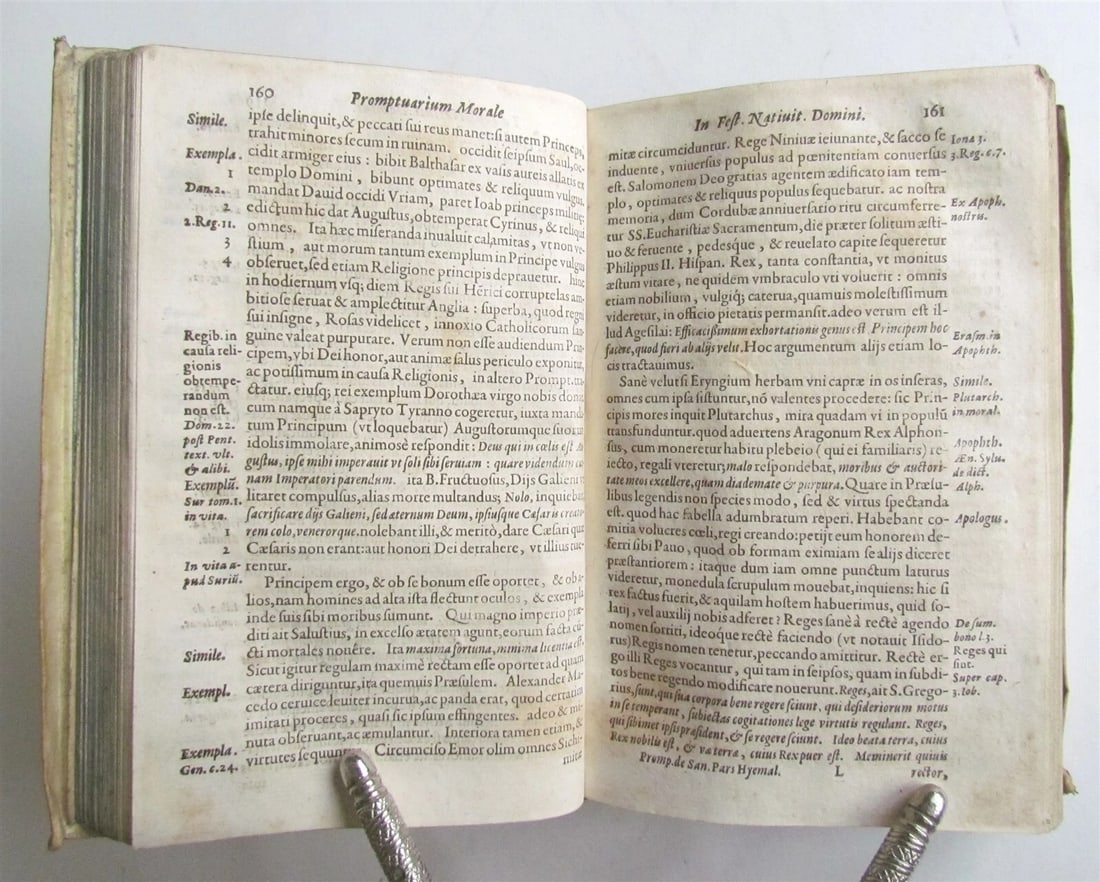 160
Promptuarium Morale
ipse delinquit, & peccati sui reus manet: si autem Princeps,
Simile.
trahit minores secum in ruinam. occidit seipsum Saul, oc-
cidit armiger eius : bibit Balthasar ex vasis aureis allatis ex
Exempla.
1
templo Domini, bibunt optimates & reliquum vulgus.
Dan. 2.
mandat Dauid occidi Vriam, paret Ioab princeps militiæ;
2
edictum hic dat Augustus, obtemperat Cyrinus, & reliqui
2. Reg. 11.
omnes. Ita hæc miseranda inualuit calamitas, vt non ve-
3
stium, aut morum tantum exemplum in Principe vulgus
4
obseruet, sed etiam Religione principis deprauetur. hinc
in hodiernum vsq; diem Regis sui Hẽrici corruptelas am-
bitiose seruat & amplectitur Anglia : superba, quod regni
sui insigne, Rosas videlicet, innoxio Catholicorum san-
Regib. in
guine valeat purpurare. Verum non esse audiendum Prin-
causa reli-
cipem, vbi Dei honor, aut animæ salus periculo exponitur,
gionis
ac potissimum in causa Religionis, in altero Prompt. tra-
obtempe-
ctatur. eiusq; rei exemplum Dorothæa virgo nobis dona
randum
cum namque à Sapryto Tyranno cogeretur, iuxta manda-
non est.
tum Principum (vt loquebatur) Augustorumque suorum
Dom. 22.
idolis immolare, animosè respondit : Deus qui in cœlis est Au-
post Pent.
gustus, ipse mihi imperauit vt soli sibi seruiam : quare videndum
text. vlt.
nam Imperatori parendum. ita B. Fructuosus, Dijs Galieni
& alibi.
litaret compulsus, alias morte multandus; Nolo, inquiebat
Exemplũ.
sacrificare dijs Galieni, sed æternum Deum, ipsiusque Cæsaris creato-
Sur tom. 1.
in vita.
rem colo, venerorque. nolebant illi, & meritò, dare Cæsari quæ
1
Cæsaris non erant: aut honori Dei detrahere, vt illius tue-
2
rentur.
In vita a-
pud Suriũ.
Principem ergo, & ob se bonum esse oportet, & ob a-
lios, nam homines ad alta ista flectunt oculos, & exempla
inde suis sibi moribus sumunt. Qui magno imperio præ-
diti ait Salustius, in excelso ætatem agunt, eorum facta cũ-
cti mortales nouêre. Ita maxima fortuna, minima licentia est.
Simile.
Sicut igitur regulam maximè rectam esse oportet ad quam
cætera diriguntur, ita quemuis Præsulem. Alexander Ma-
Exempl.
cedo ceruice leuiter incurua, ac panda erat, quod certatim
imitati proceres, quasi sic ipsum effingentes. adeo & mi-
nuta obseruant, ac æmulantur. Interiora tamen etiam, &
Exempla.
virtutes sequuntur. Circumciso Emor olim omnes Sichi-
Gen. c. 24.
mitæ
In Fest. Natiuit. Domini.
161
mitæ circumciduntur. Rege Niniuæ ieiunante, & sacco se
Iona 3.
induente, vniuersus populus ad pœnitentiam conuersus
3. Reg. c. 7.
est. Salomonem Deo gratias agentem ædificato iam tem-
plo, optimates & reliquus populus sequebatur. ac nostra
Ex Apoph.
memoria, dum Cordubæ anniuersario ritu circumferre-
nostris.
tur SS. Eucharistiæ Sacramentum, die præter solitum æsti-
uo & feruente, pedesque, & reuelato capite sequeretur
Philippus II. Hispan. Rex, tanta constantia, vt monitus
æstum vitare, ne quidem vmbraculo vti voluerit : omnis
etiam nobilium, vulgiq; caterua, quamuis molestissimum
videretur, in officio pietatis permansit. adeo verum est il-
lud Agesilai: Efficacissimum exhortationis genus est Principem hoc
Erasm. in
facere, quod fieri ab alijs velit. Hoc argumentum alijs etiam lo-
Apophth.
cis tractauimus.
Sanè velut si Eryngium herbam vni capræ in os inseras,
Simile.
omnes cum ipsa sistuntur, nõ valentes procedere: sic Prin-
Plutarch.
cipis mores inquit Plutarchus, mira quadam vi in populũ
in moral.
transfunduntur. quod aduertens Aragonum Rex Alphon-
sus, cum moneretur habitu plebeio (qui ei familiaris) re-
Apophth.
iecto, regali vteretur; malo respondebat, moribus & auctori-
Æn. Sylu.
tate meos excellere, quam diademate & purpura. Quare in Præsu-
de dict.
libus legendis non species modo, sed & virtus spectanda
Alph.
est. quod hac fabella adumbratum reperi. Habebant co-
Apologus.
mitia volucres cœli, regi creando: petijt eum honorem de-
ferri sibi Pauo, quod ob formam eximiam se alijs diceret
præstantiorem : itaque dum iam omne punctum laturus
videretur, monedula scrupulum mouebat, inquiens: hic si
rex factus fuerit, & aquilam hostem habuerimus, quid so-
latij, vel auxilij nobis adferet? Reges sanè à rectè agendo
De sum.
nomen sortiti, ideoque rectè faciendo (vt notauit Isido-
bono l. 3.
rus) Regis nomen tenetur, peccando amittitur. Rectè er-
Reges qui
go illi Reges vocantur, qui tam in seipsos, quam in subdi-
sint.
tos bene regendo modificare nouerunt. Reges, ait S. Grego-
Super cap.
rius, sunt, qui sua corpora bene regere sciunt. qui desideriorum motus
3. Iob.
in se temperant, subiectas cogitationes lege virtutis regulant. Reges,
qui sibimet ipsis præsident, & se regere sciunt. Ideo beata terra, cuius
Rex nobilis est, & væ terra, cuius Rex puer est. Meminerit quiuis
Promp. de San. Pars Hyemal.
L
rector,